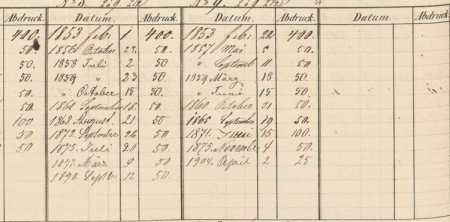 Abdruck. Datum. Abdruck. Datum. Abdruck. Datum. Abdruck.
400. 1853 febr. 1 400. 1853 febr. 22 400.
50 1856 October 22. 50. 1857 Mai 50.
50. 1858 Juli 2 50. " Septemb 11 50.
50. 1859 " 23 50. 1859 März 18 50.
50. " October 18 50. " Juni 15 50.
50. 1860 September 18. 50. 1860 October 31 50.
100 1868 August. 21 50 1865 September 19 50.
50 1872 September 26 50. 1871. Juni 15 100
50 1875. Juli 20 50. 1875. November 4 50.
März 9 50 1904 April 2 25
1890. Septbr 12 50.